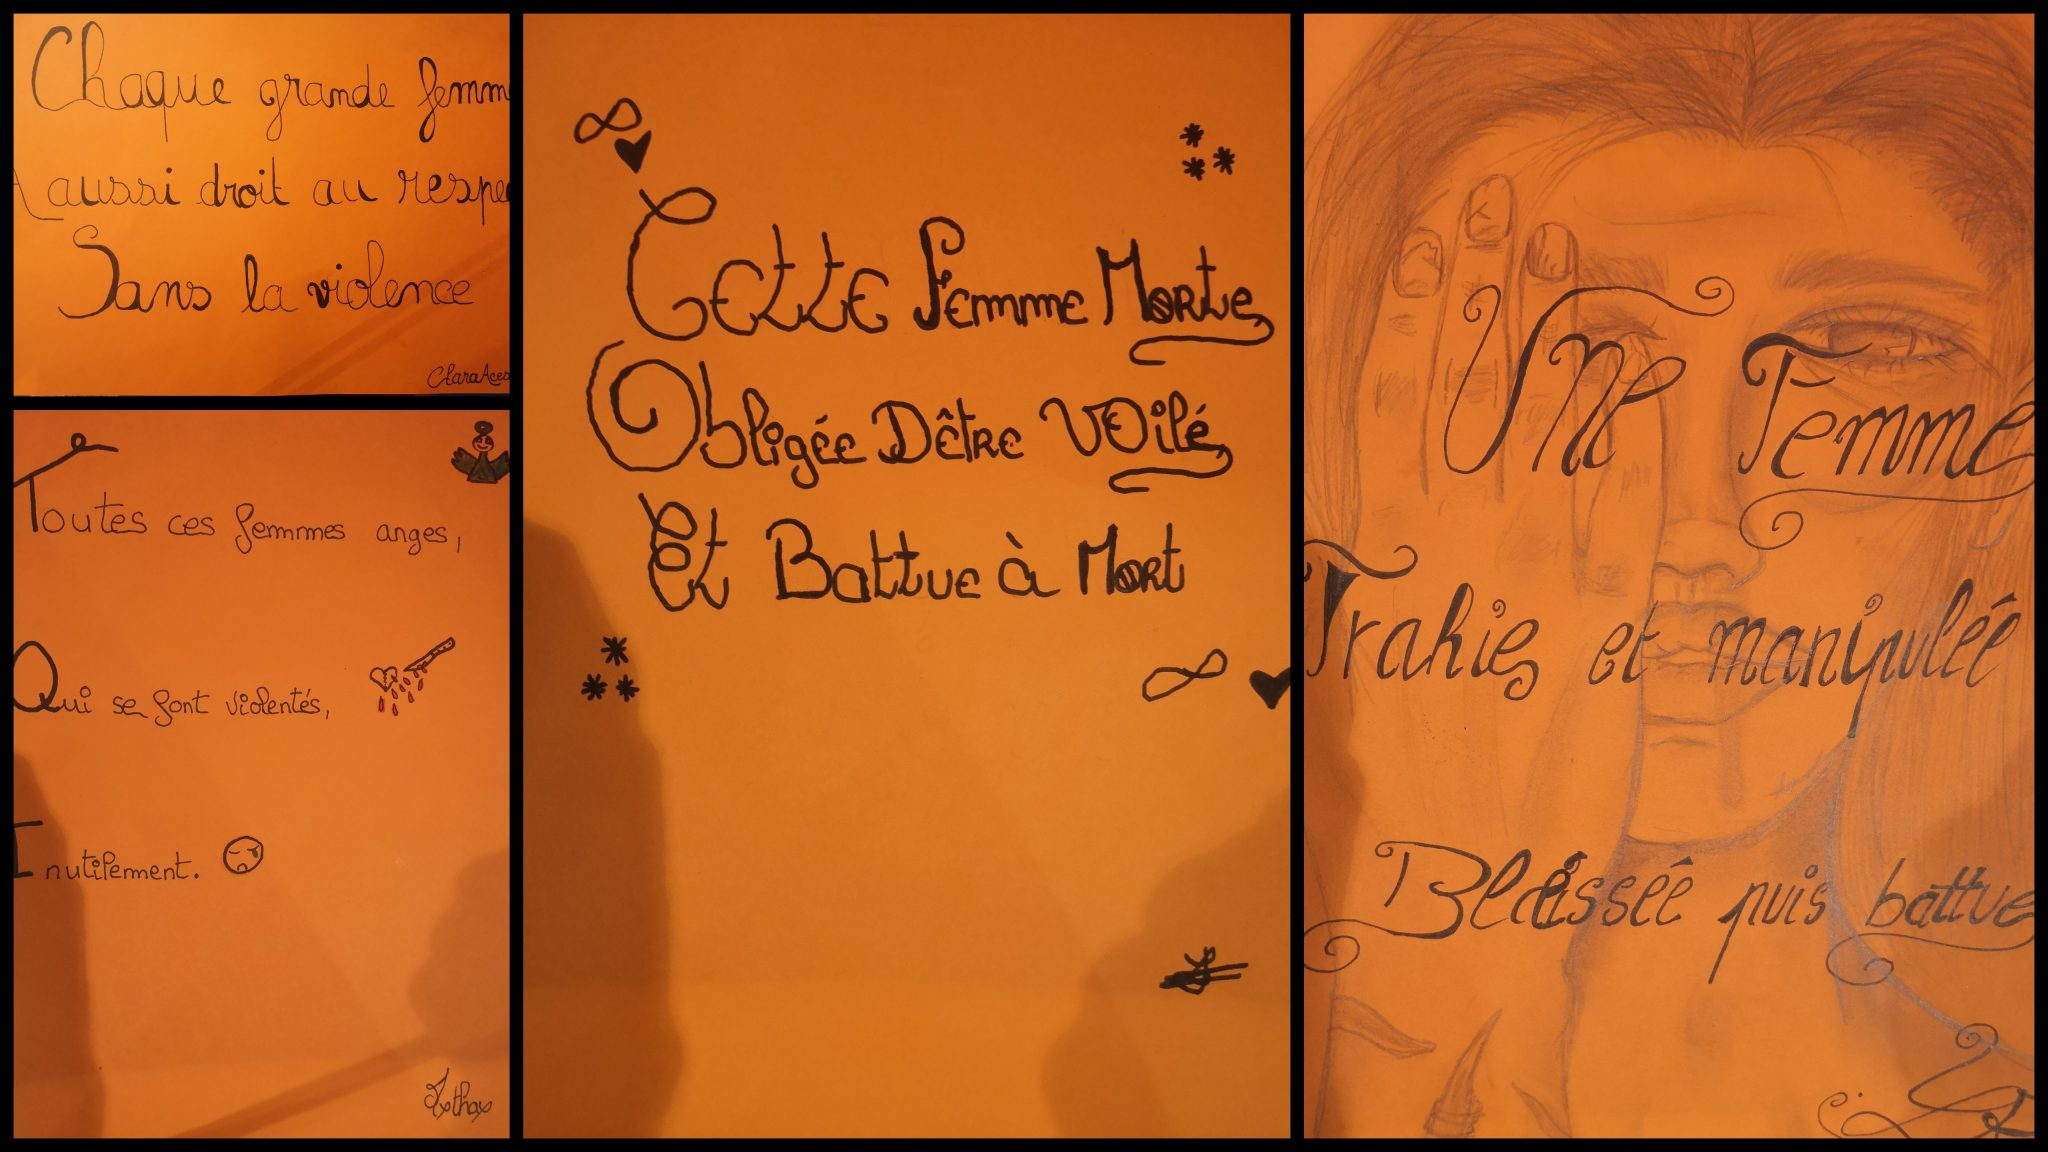 Chaque grande femm
A aussi droit au respe
Sans la violence
Toutes ces femmes anges,
Qui se font violentés,
Inutilement.
Cette Femme Morte
Obligée D'être Voilé
Et Battue à Mort
Une Femme
Trahies et manipulée
Blessée puis battue